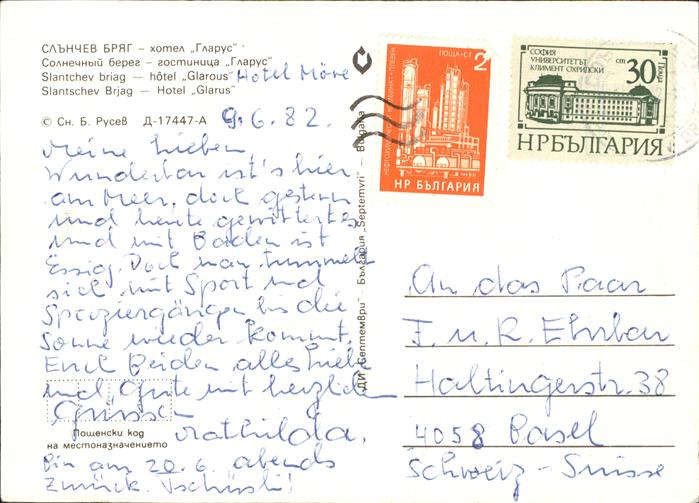 СЛЪНЧЕВ БРЯГ – хотел „Гларус"
Солнечный берег – гостиница "Гларус"
Slantchev briag — hôtel „Glarous" Hotel Möve
Slantschev Brjag — Hotel „Glarus"
© Сн. Б. Русев Д-17447-А 9.6.82.
Meine Lieben
Wunderbar ist's hier
am Meer, doch gestern
und heute gewittert es
und mit Baden ist
Essig. Doch man tummelt
sich mit Sport und
Spaziergängen bis die
Sonne wieder kommt.
Euch Beiden alles Liebe
und Gute mit herzlichen
Grüssen
Mathilda.
Пощенски код
на местоназначението
Bin am 20.6. abends
zurück. Tschüssli!
ДИ „Септември" — България „Septemvri" — Bulgaria
ПОЩА·СТ 2
НЕФТОХИМ
КОМБИНАТ·ПЛЕВЕН
НР БЪЛГАРИЯ
СОФИЯ
УНИВЕРСИТЕТЪТ
КЛИМЕНТ ОХРИДСКИ
ст 30 Поща
НРБЪЛГАРИЯ
An das Paar
F. u. R. Ehrbar
Haltingerstr. 38
4058 Basel
Schweiz - Suisse